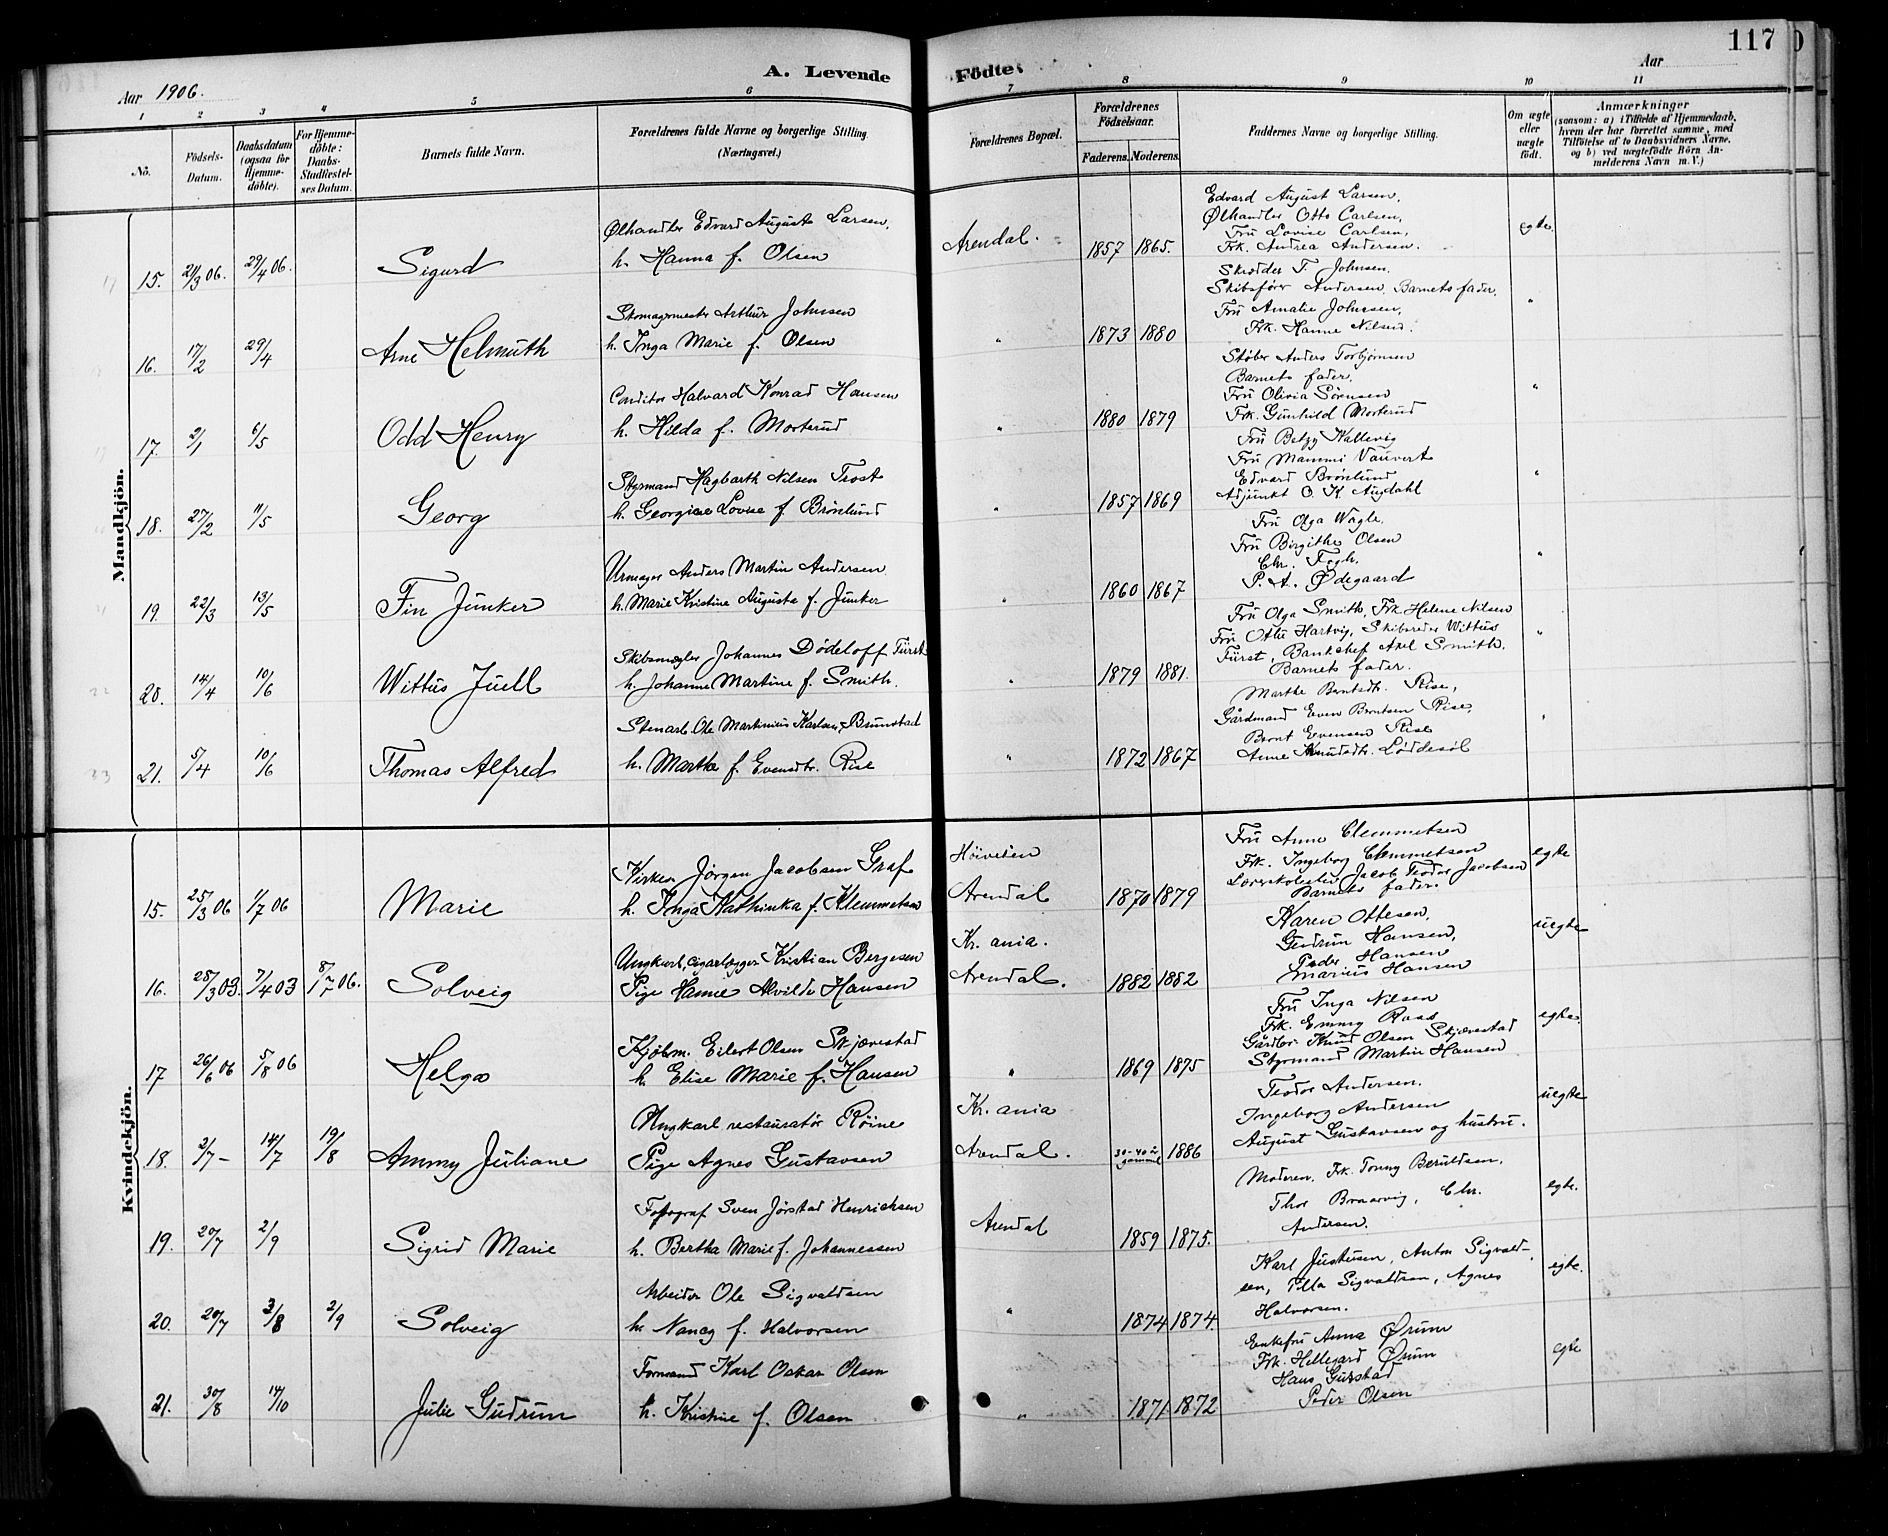 117
A. Levende Födte.
Aar 1906.
Aar
1 2 3 4 5 6 7 8 9 10 11
No.
Födsels-Datum.
Daabsdatum (ogsaa for Hjemmedöbte).
For Hjemmedöbte: Daabs-Stadfæstelses Datum.
Barnets fulde Navn.
Forældrenes fulde Navne og borgerlige Stilling (Næringsvei.)
Forældrenes Bopæl.
Forældrenes Födselsaar.
Faderens. Moderens.
Faddernes Navne og borgerlige Stilling.
Om ægte eller uægte födt.
Anmærkninger
(saasom: a) i Tilfælde af Hjemmedaab, hvem der har forrettet samme, med Tilföielse af to Daabsvidners Navne, og b) ved uægtefödte Börn Anmelderens Navn m. V.)
Mandkjön.
15. 21/3 06. 29/4 06. Sigurd
Ølhandler Edvard August Larsen,
h. Hanna f. Olsen
Arendal. 1857 1865.
Edvard August Larsen,
Ølhandler Otto Carlsen,
Fru Lovise Carlsen,
Frk. Andrea Andersen.
egte.
16. 17/2 29/4 Arne Helmuth
Skomagermester Arthur Johnsen
h. Inga Marie f. Olsen
" 1873 1880
Skrædder T. Johnsen.
Skibsfører Andersen, Barnets fader,
Fru Amalie Johnsen,
Frk. Hanne Nilsen.
"
17. 2/1 6/5 Odd Henry
Conditor Halvard Konrad Hansen
h. Hilda f. Morterud
" 1880 1879
Støber Anders Torbjørnsen
Barnets fader,
Fru Olivia Sørensen
Frk. Gunhild Morterud
"
18. 27/2 11/5 Georg
Styrmand Hagbarth Nilsen Trost
h. Georgine Lovise f. Brønlund
" 1857 1869
Fru Betzy Kallevig
Fru Mammi Vauvert
Edvard Brønlund
Adjunkt O. K. Augdahl
"
19. 22/3 13/5 Fin Junker
Urmager Anders Martin Andersen
h. Marie Kristine Augusta f. Junker
" 1860 1867
Fru Olga Wagle,
Fru Birgithe Olsen
Chr. Fogh.
P. A. Ødegaard
"
20. 14/4 10/6 Wittus Juell
Skibsmægler Johannes Dødeloff Fürst
h. Johanne Martine f. Smith.
" 1879 1881.
Fru Olga Smith, Frk Helene Nilsen
Fru Otlu Hartvig, Skibsreder Wittus
Fürst, Bankchef Axel Smith.
Barnets fader.
"
21. 5/4 10/6 Thomas Alfred
Stenarb. Ole Martinius Karlsen Brunstad
h. Marthe f. Evensdtr. Rise
" 1872 1867
Marthe Berntsdtr. Rise,
Gårdmand Even Berntsen Rise,
Bernt Evensen Rise
Anne Knudsdtr. Løddesøl
"
Kvindekjön.
15. 25/3 06 1/7 06 Marie
Kirkes. Jørgen Jacobsen Graf
h. Inga Kathinka f. Klemmetsen
Høiveien
Arendal 1870 1879
Fru Anne Clemmetsen
Frk. Ingeborg Clemmetsen
Lærerskoleelev Jacob Teodor Jacobsen
Barnets fader.
egte
16. 28/3 03. 7/4 03 8/7 06. Solveig
Ungkarl, cigarlægger Kristian Bergesen
Pige Hanne Alvilde Hansen
Kr. ania.
Arendal. 1882 1882
Karen Ottesen,
Gudrun Hansen,
Peder Hansen
Marius Hansen
uegte
17 26/6 06 5/8 06 Helga
Kjøbm. Eilert Olsen Skjævestad
h. Elise Marie f. Hansen
" 1869 1875
Fru Inga Nilsen
Frk. Emmy Raad
Gårdbr. Knud Olsen Skjævestad
Styrmand Martin Hansen
egte.
18. 2/7 - 14/7 19/8 Ammy Juliane
Ungkarl restauratør Røine
Pige Agnes Gustavsen
Kr. ania
Arendal. 30-40 år gammel 1886
Teodor Andersen.
Ingeborg Andersen
August Gustavsen og hustru.
uegte
19. 20/7 2/9 Sigrid Marie
Fotograf Sven Jørstad Henrichsen
h. Bertha Marie f. Johannessen
Arendal 1859 1875.
Moderen, Frk. Tonny Beruldsen,
Thor Braarvig, Chr.
Andersen.
egte.
20. 20/7 3/8 2/9 Solveig
Arbeider Ole Sigvaldsen
h. Nancy f. Halvorsen
" 1874 1874.
Karl Justnsen, Anton Sigvald-
sen, Tilla Sigvaldsen, Agnes
Halvorsen.
egte.
21. 30/8 14/10 Julie Gudrun
Formand Karl Oskar Olsen
h. Kristine f. Olsen
" 1871 1872
Enkefru Anna Ørum
Frk. Hillegard Ørum
Hans Guxstad
Peder Olsen
egte